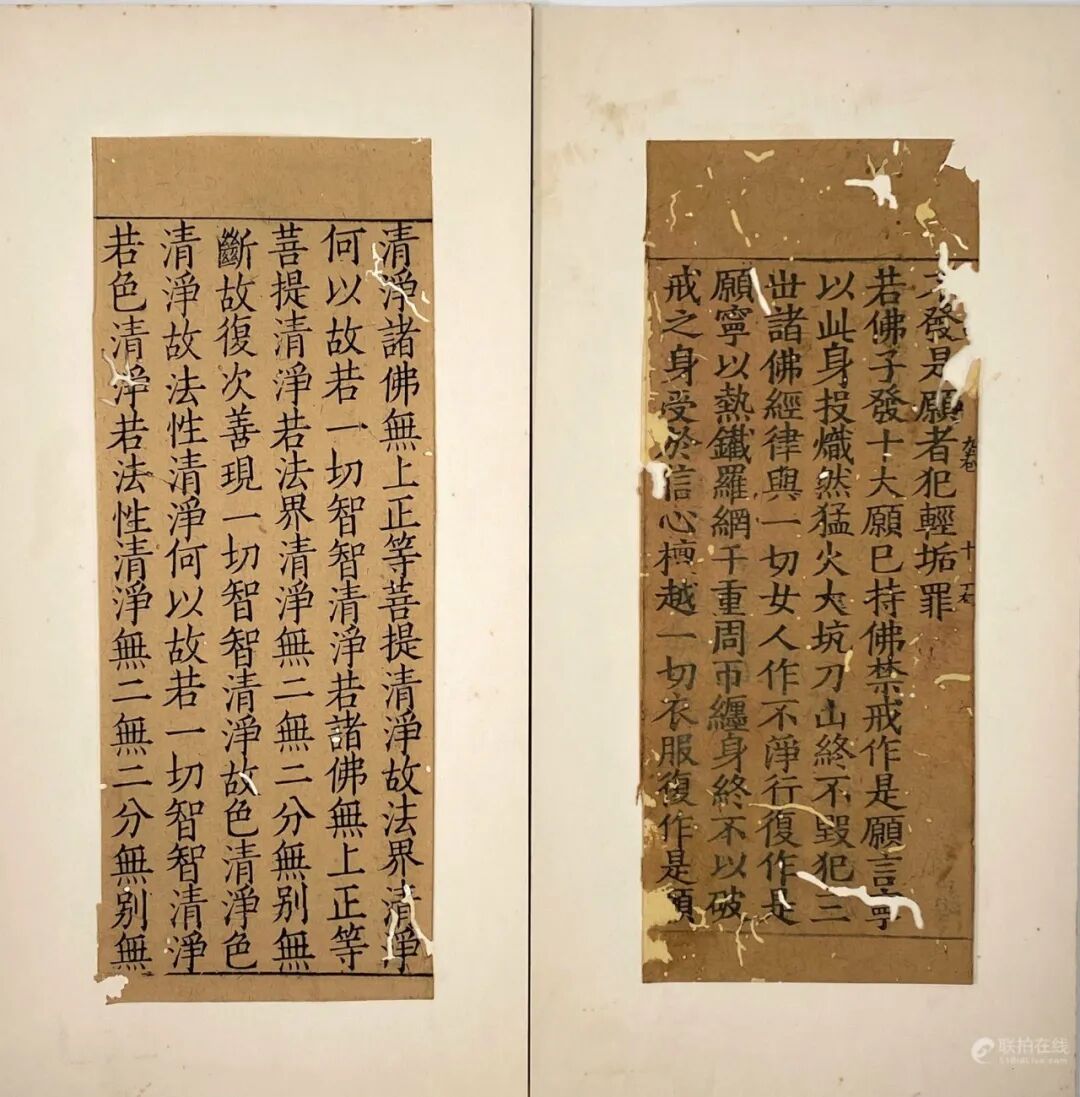 不發是願者犯輕垢罪
十
若佛子發十大願巳持佛禁戒作是願言寧
以此身投熾然猛火大坑刀山終不毀犯三
世諸佛經律與一切女人作不淨行復作是
願寧以熱鐵羅網千重周帀纏身終不以破
戒之身受於信心檀越一切衣服復作是願
清淨諸佛無上正等菩提清淨故法界清淨
何以故若一切智智清淨若諸佛無上正等
菩提清淨若法界清淨無二無二分無别無
斷故復次善現一切智智清淨故色清淨色
清淨故法性清淨何以故若一切智智清淨
若色清淨若法性清淨無二無二分無别無
联拍在线
51bidlive.com